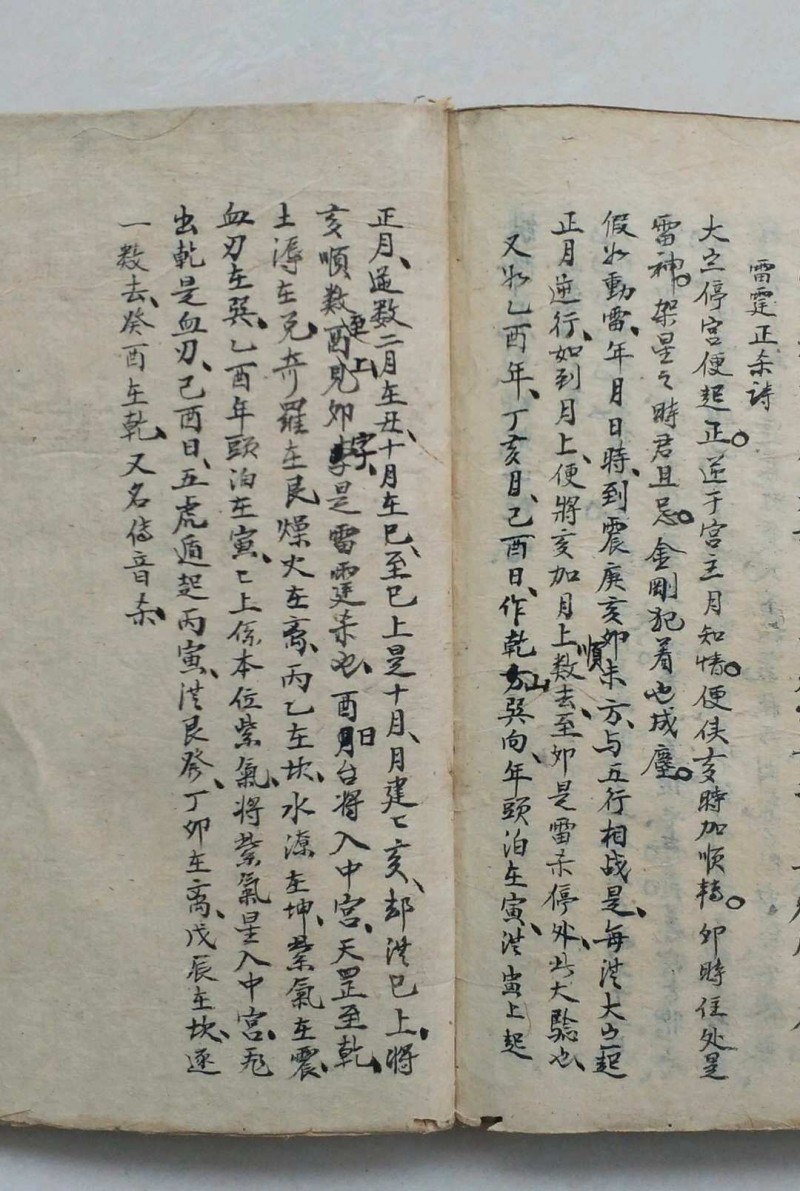 雷霆正杀詩
大亡停宫便起正。逆于宫主月知情。便侠亥時加順轉。卯時住处是
雷神。架星之時君且忌。金剛犯着也成塵。
假如動雷、年月日時、到震庚亥卯未方、与五行相战是、每従大亡起
正月逆行、如到月上、便將亥加月上順数去、至卯是雷杀停处、此大驗也、
又如乙酉年、丁亥月、己酉日、作乾山巽向、年頭泊在寅、従寅上起
正月、逆数二月在丑、十月在巳、至巳上是十月、月建乙亥、却従巳上、將
亥順数、酉上見卯字、是雷霆杀也、酉日台將入中宫、天罡至乾、
土潯在兑、奇羅在艮、燥火在离、丙乙在坎、水潦在坤、紫氣在震、
血刃在巽、乙酉年頭泊在寅、乙上係本位紫氣、將紫氣星入中宫、
出乾是血刃、己酉日、五虎遁起丙寅、従艮癸、丁卯在离、戊辰在坎、逐
一数去、癸酉在乾、又名傳音杀、